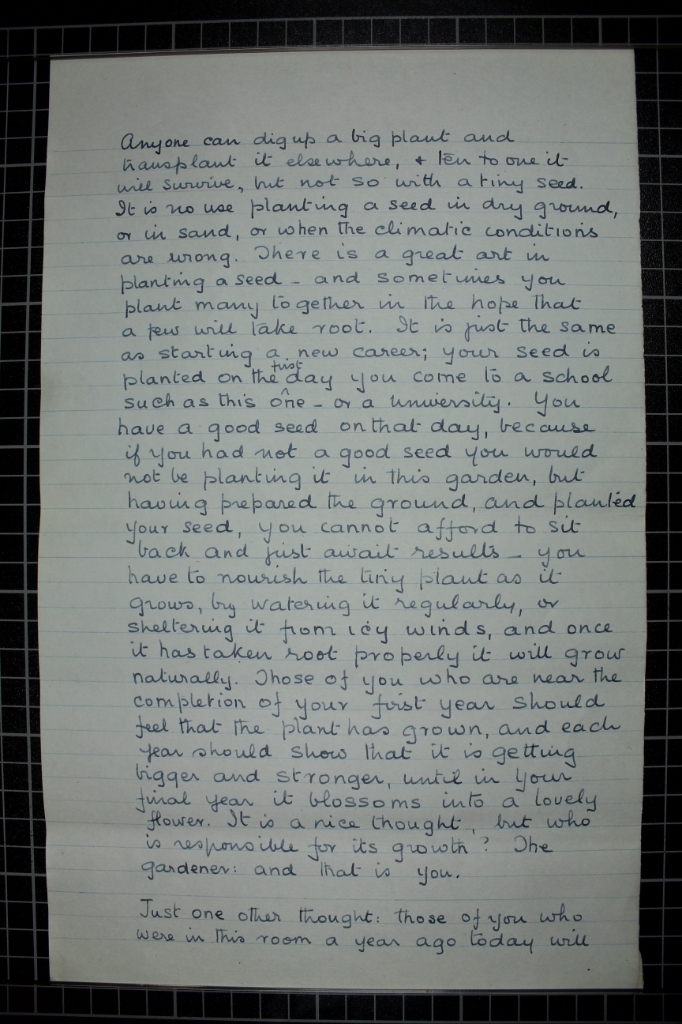 Anyone can dig up a big plant and
transplant it elsewhere, & ten to one it
will survive, but not so with a tiny seed.
It is no use planting a seed in dry ground,
or in sand, or when the climatic conditions
are wrong. There is a great art in
planting a seed - and sometimes you
plant many together in the hope that
a few will take root. It is just the same
as starting a new career; your seed is
planted on the first day you come to a school
such as this one - or a university. You
have a good seed on that day, because
if you had not a good seed you would
not be planting it in this garden, but
having prepared the ground, and planted
your seed, you cannot afford to sit
back and just await results - you
have to nourish the tiny plant as it
grows, by watering it regularly, or
sheltering it from icy winds, and once
it has taken root properly it will grow
naturally. Those of you who are near the
completion of your first year should
feel that the plant has grown, and each
year should show that it is getting
bigger and stronger, until in your
final year it blossoms into a lovely
flower. It is a nice thought, but who
is responsible for its growth? The
gardener: and that is you.
Just one other thought: those of you who
were in this room a year ago today will